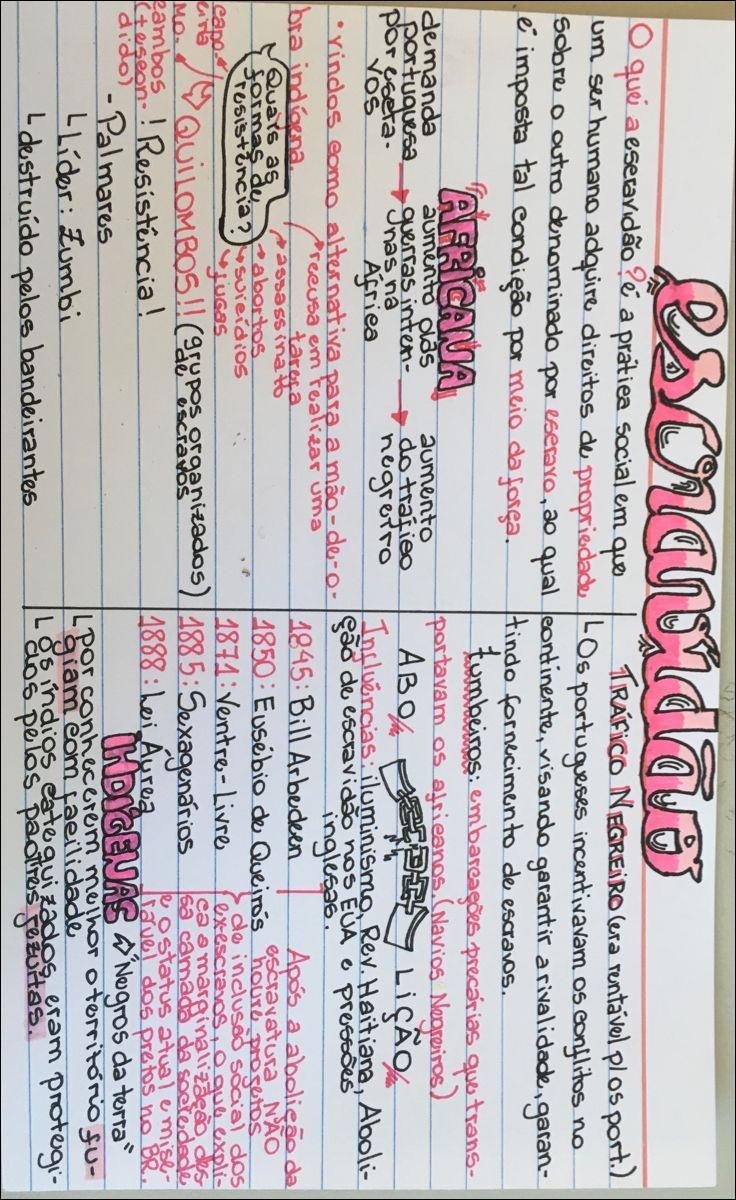 escravidão
O que é a escravidão? é a prática social em que
um ser humano adquire direitos de propriedade
sobre o outro denominado por escravo, ao qual
é imposta tal condição por meio da força.
AFRICANA
demanda
portuguesa
por escra-
vos
→
aumento das
guerras inter-
nas na
África
→
aumento
do tráfico
negreiro
• vindos como alternativa para a mão-de-o-
bra indígena.
Quais as
formas de
resistência?
→ recusa em realizar uma
tarefa
→ assassinato
→ abortos
→ suicídios
→ fugas
QUILOMBOS!! (grupos organizados)
de escravos
capo-
eira
mo.
cambos
(+ escon-
dido)
! Resistência!
- Palmares
└ Líder: Zumbi
└ destruído pelos bandeirantes
TRÁFICO NEGREIRO (era rentável p/ os port.)
└ Os portugueses incentivavam os conflitos no
continente, visando garantir a rivalidade, garan-
tindo fornecimento de escravos.
tumbeiros: embarcações precárias que trans-
portavam os africanos. (Navios Negreiros)
ABO LIÇÃO
Influências: iluminismo, Rev. Haitiana, Aboli-
ção de escravidão nos EUA e pressões
inglesas.
1845: Bill Arbedeen
1850: Eusébio de Queirós
1871: Ventre-Livre
1885: Sexagenários
1888: Lei Áurea
Após a abolição da
escravatura NÃO
houve projetos
de inclusão social dos
exescravos, o que expli-
ca a marginalização des
sa camada da sociedade
e o status atual e mise-
rável dos pretos no BR.
INDÍGENAS ⇨ "Negros da terra"
└ por conhecerem melhor o território fu-
giam com facilidade
└ os índios catequizados eram protegi-
dos pelos padres jezuítas.